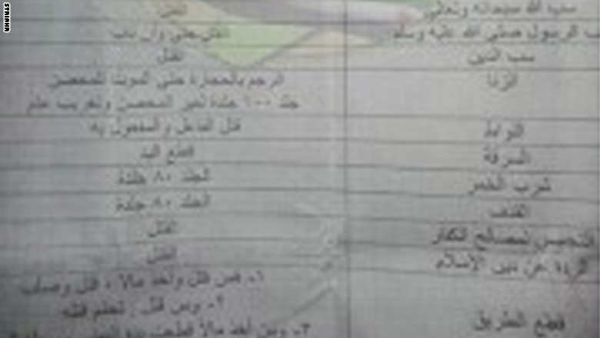 سب الله سبحانه وتعالى القتل
سب الرسول صلى الله عليه وسلم القتل حتى وإن تاب
سب الدين القتل
الزنا الرجم بالحجارة حتى الموت للمحصن
جلد ١٠٠ جلدة لغير المحصن وتغريب عام
اللواط قتل الفاعل والمفعول به
السرقة قطع اليد
شرب الخمر الجلد ٨٠ جلدة
القذف الجلد ٨٠ جلدة
التجسس لصالح الكفار القتل
الردة عن دين الإسلام القتل
قطع الطريق ١- فمن قتل وأخذ مالا ، قتل وصلب
٢- ومن قتل ،
٣- ومن أخذ مالا
SYRIAHR